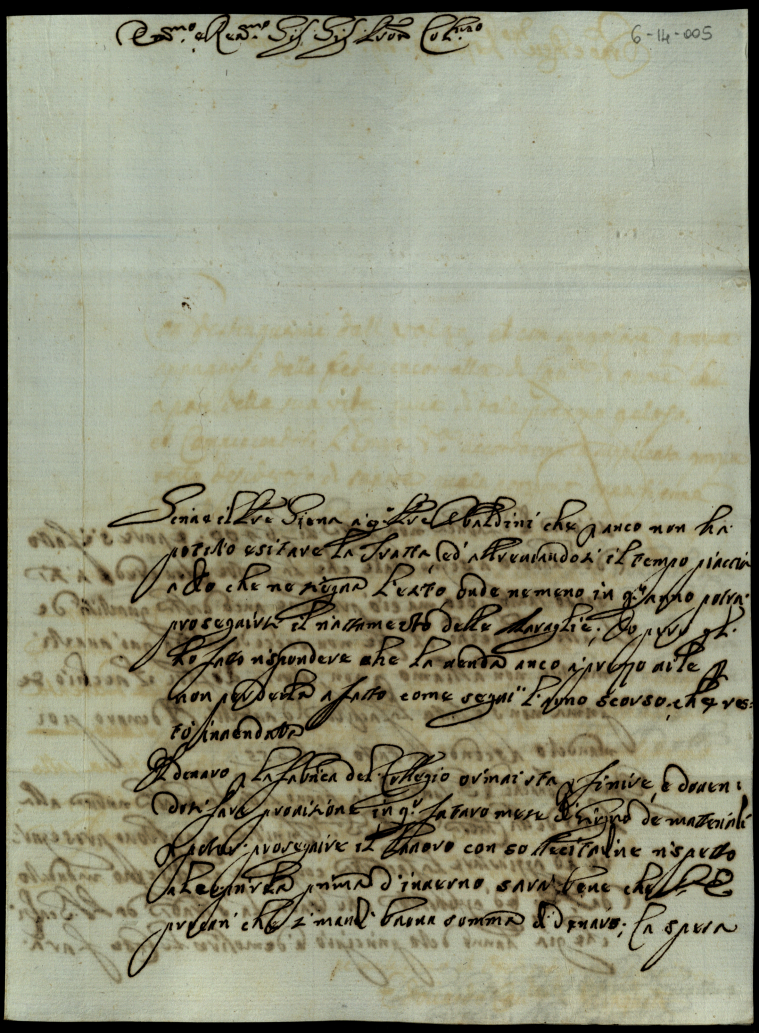 Em.mo e Rev.mo Sig.r Sig.r Pron Col.mo
6-14-005
Scrive il Pre Siena a q.o Pre Ubaldini che p anco non ha
potuto esitare la Tratta, ed abbreviandosi il tempo piaccia
a Dio che ne segua l'esito, onde nemeno in q.o anno potrà
proseguirsi il riattamento delle Muraglie; Io però gl'
ho fatto rispondere che la venda anco a prezzo vile p
non perderla afatto come seguì l'anno scorso, che res-
tò invenduta
Il denaro p la fabrica del Collegio ormai sta p finire, e doven-
dosi fare provisione in q.o futuro mese di Giugno de materiali
p poter proseguire il lavoro con sollecitudine rispetto
a coprirla prima d'inverno, sarà bene che V. E.
procuri che si mandi buona somma di denaro; la spesa